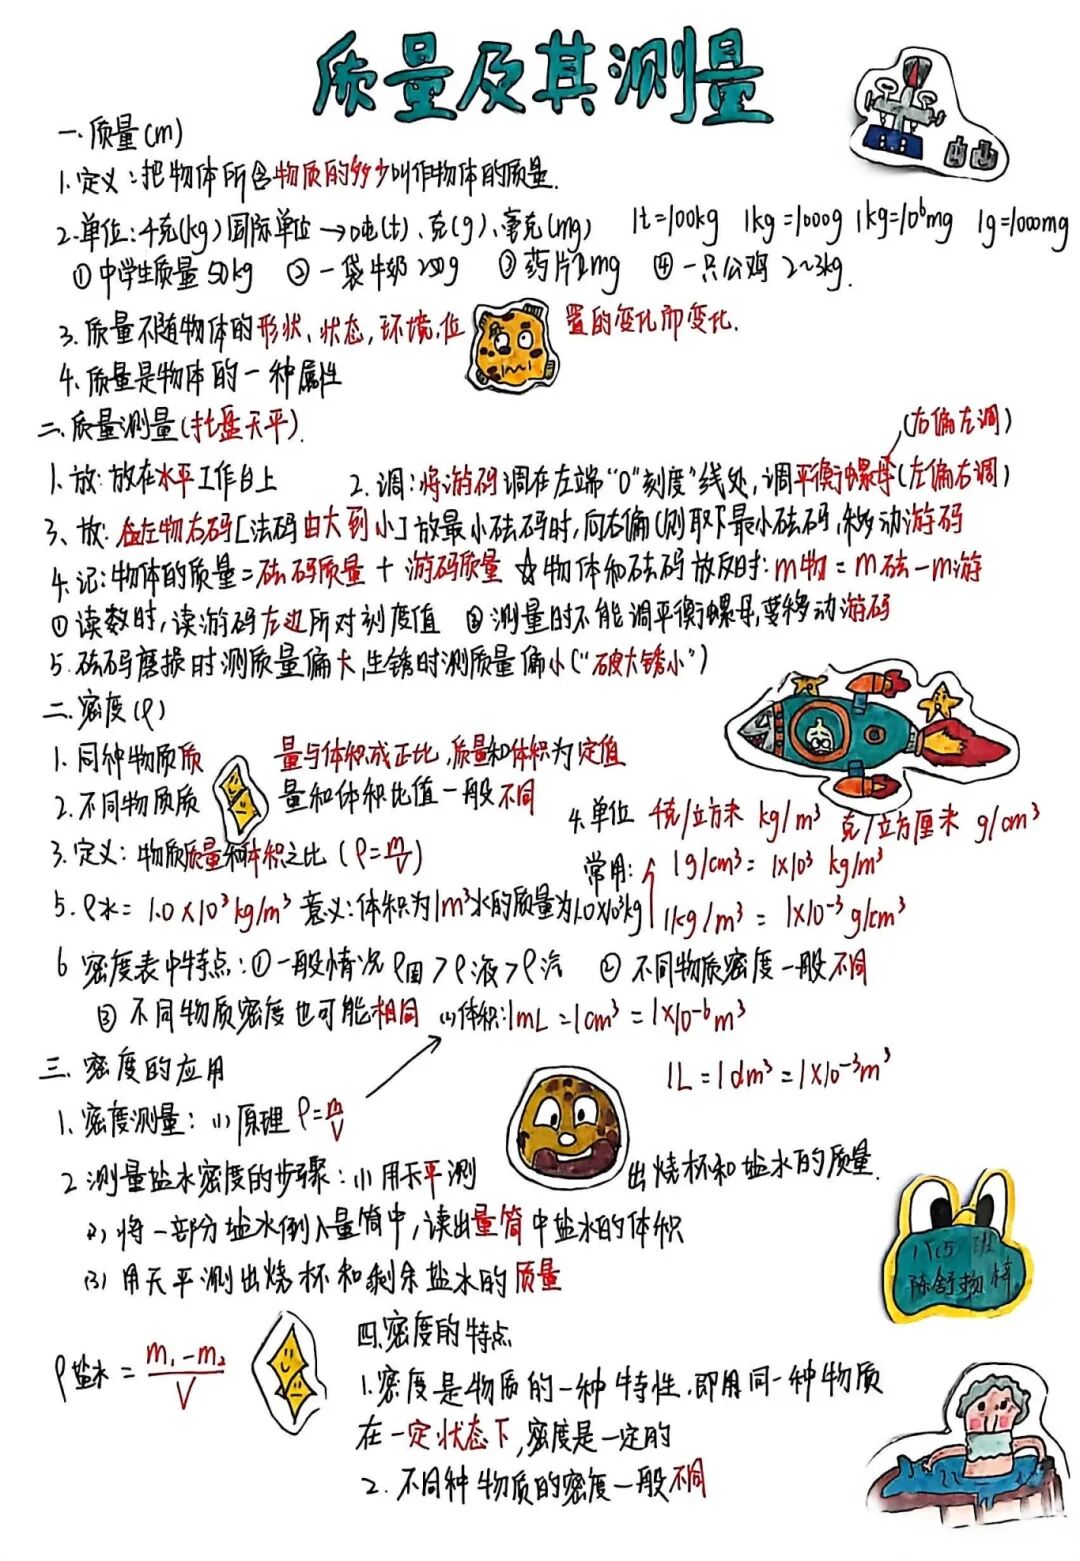 质量及其测量
一.质量(m)
1.定义:把物体所含物质的多少叫作物体的质量.
2.单位:千克(kg)国际单位→吨(t)、克(g)、毫克(mg) 1t=100kg 1kg=1000g 1kg=10⁶mg 1g=1000mg
①中学生质量50kg ②一袋牛奶250g ③药片2mg ④一只公鸡2~3kg.
3.质量不随物体的形状、状态,环境,位置的变化而变化.
4.质量是物体的一种属性
二.质量测量(托盘天平).
(右偏左调)
1.放:放在水平工作台上 2.调:将游码调在左端"0"刻度"线处,调平衡螺母(左偏右调)
3、放:在左物右码[法码由大到小]放最小砝码时,向右偏(则取下最小砝码,移动游码
4.记:物体的质量=砝码质量+游码质量 ☆物体和砝码放反时:m物=m砝-m游
①读数时,读游码左边所对刻度值 ②测量时不能调平衡螺母,要移动游码
5.砝码磨损时测质量偏大,生锈时测质量偏小("破大锈小")
二.密度(ρ)
1.同种物质质量与体积成正比,质量和体积为定值
2.不同物质质量和体积比值一般不同
4.单位 千克/立方米 kg/m³ 克/立方厘米 g/cm³
3.定义:物质质量和体积之比(ρ=m/V)
常用:1g/cm³=1×10³ kg/m³
5.ρ水=1.0×10³kg/m³ 意义:体积为1m³水的质量为1.0×10³kg
1kg/m³=1×10⁻³g/cm³
6 密度表中特点:①一般情况ρ固>ρ液>ρ汽 ②不同物质密度一般不同
③不同物质密度也可能相同 (1)体积:1mL=1cm³=1×10⁻⁶m³
1L=1dm³=1×10⁻³m³
三.密度的应用
1.密度测量:(1)原理ρ=m/V
2 测量盐水密度的步骤:(1)用天平测出烧杯和盐水的质量.
(2)将一部分盐水倒入量筒中,读出量筒中盐水的体积
(3)用天平测出烧杯和剩余盐水的质量
八(5)班
陈舒
ρ盐水=m₁-m₂/V
四.密度的特点
1.密度是物质的一种特性.即用同一种物质
在一定状态下,密度是一定的
2.不同种物质的密度一般不同